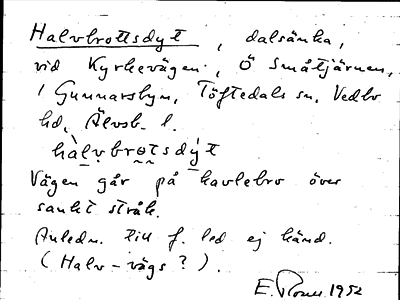 Halvbrottsdyt, dalsänka,
vid Kyrkevägen, Ö Småtjärnen,
i Gunnarsbyn, Töftedals sn, Vedbo
hd, Älvsb. l.
hàlvbrotsdýt
Vägen går på kavlebro över
sankt stråk.
Anledn. till f. led ej känd.
(Halv-vägs?).
E. 1952